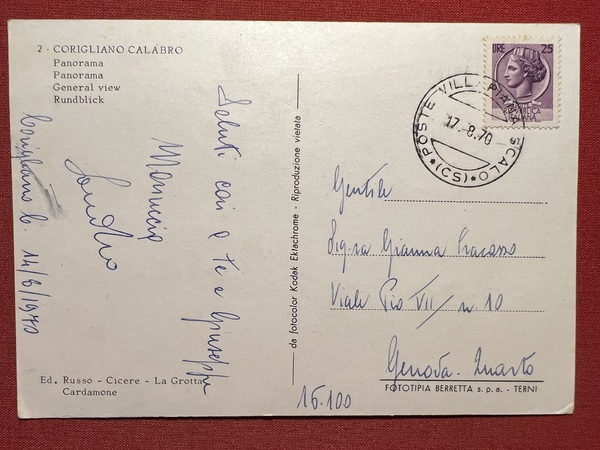 2 - CORIGLIANO CALABRO
Panorama
Panorama
General view
Rundblick
Corigliano C. 14/8/1970
Saluti cari a te e Giuseppe
Mariuccia
Sandro
Ed. Russo - Cicere - La Grotta
Cardamone
da fotocolor Kodak Ektachrome - Riproduzione vietata
LIRE 25
REPUBBLICA
ITALIANA
POSTE VILLAPIANA SCALO
17.-8.70
(CS)
Gentile
Sig.ra Gianna Fracasso
Viale Pio VII / n. 10
Genova - Quarto
FOTOTIPIA BERRETTA s.p.a. - TERNI
16-100